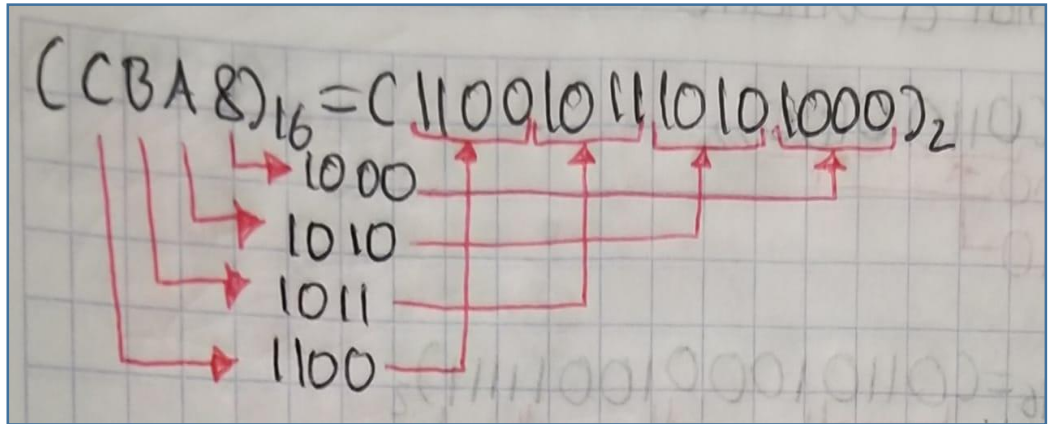 (CBA8)₁₆=(1100101110101000)₂
1000
1010
1011
1100